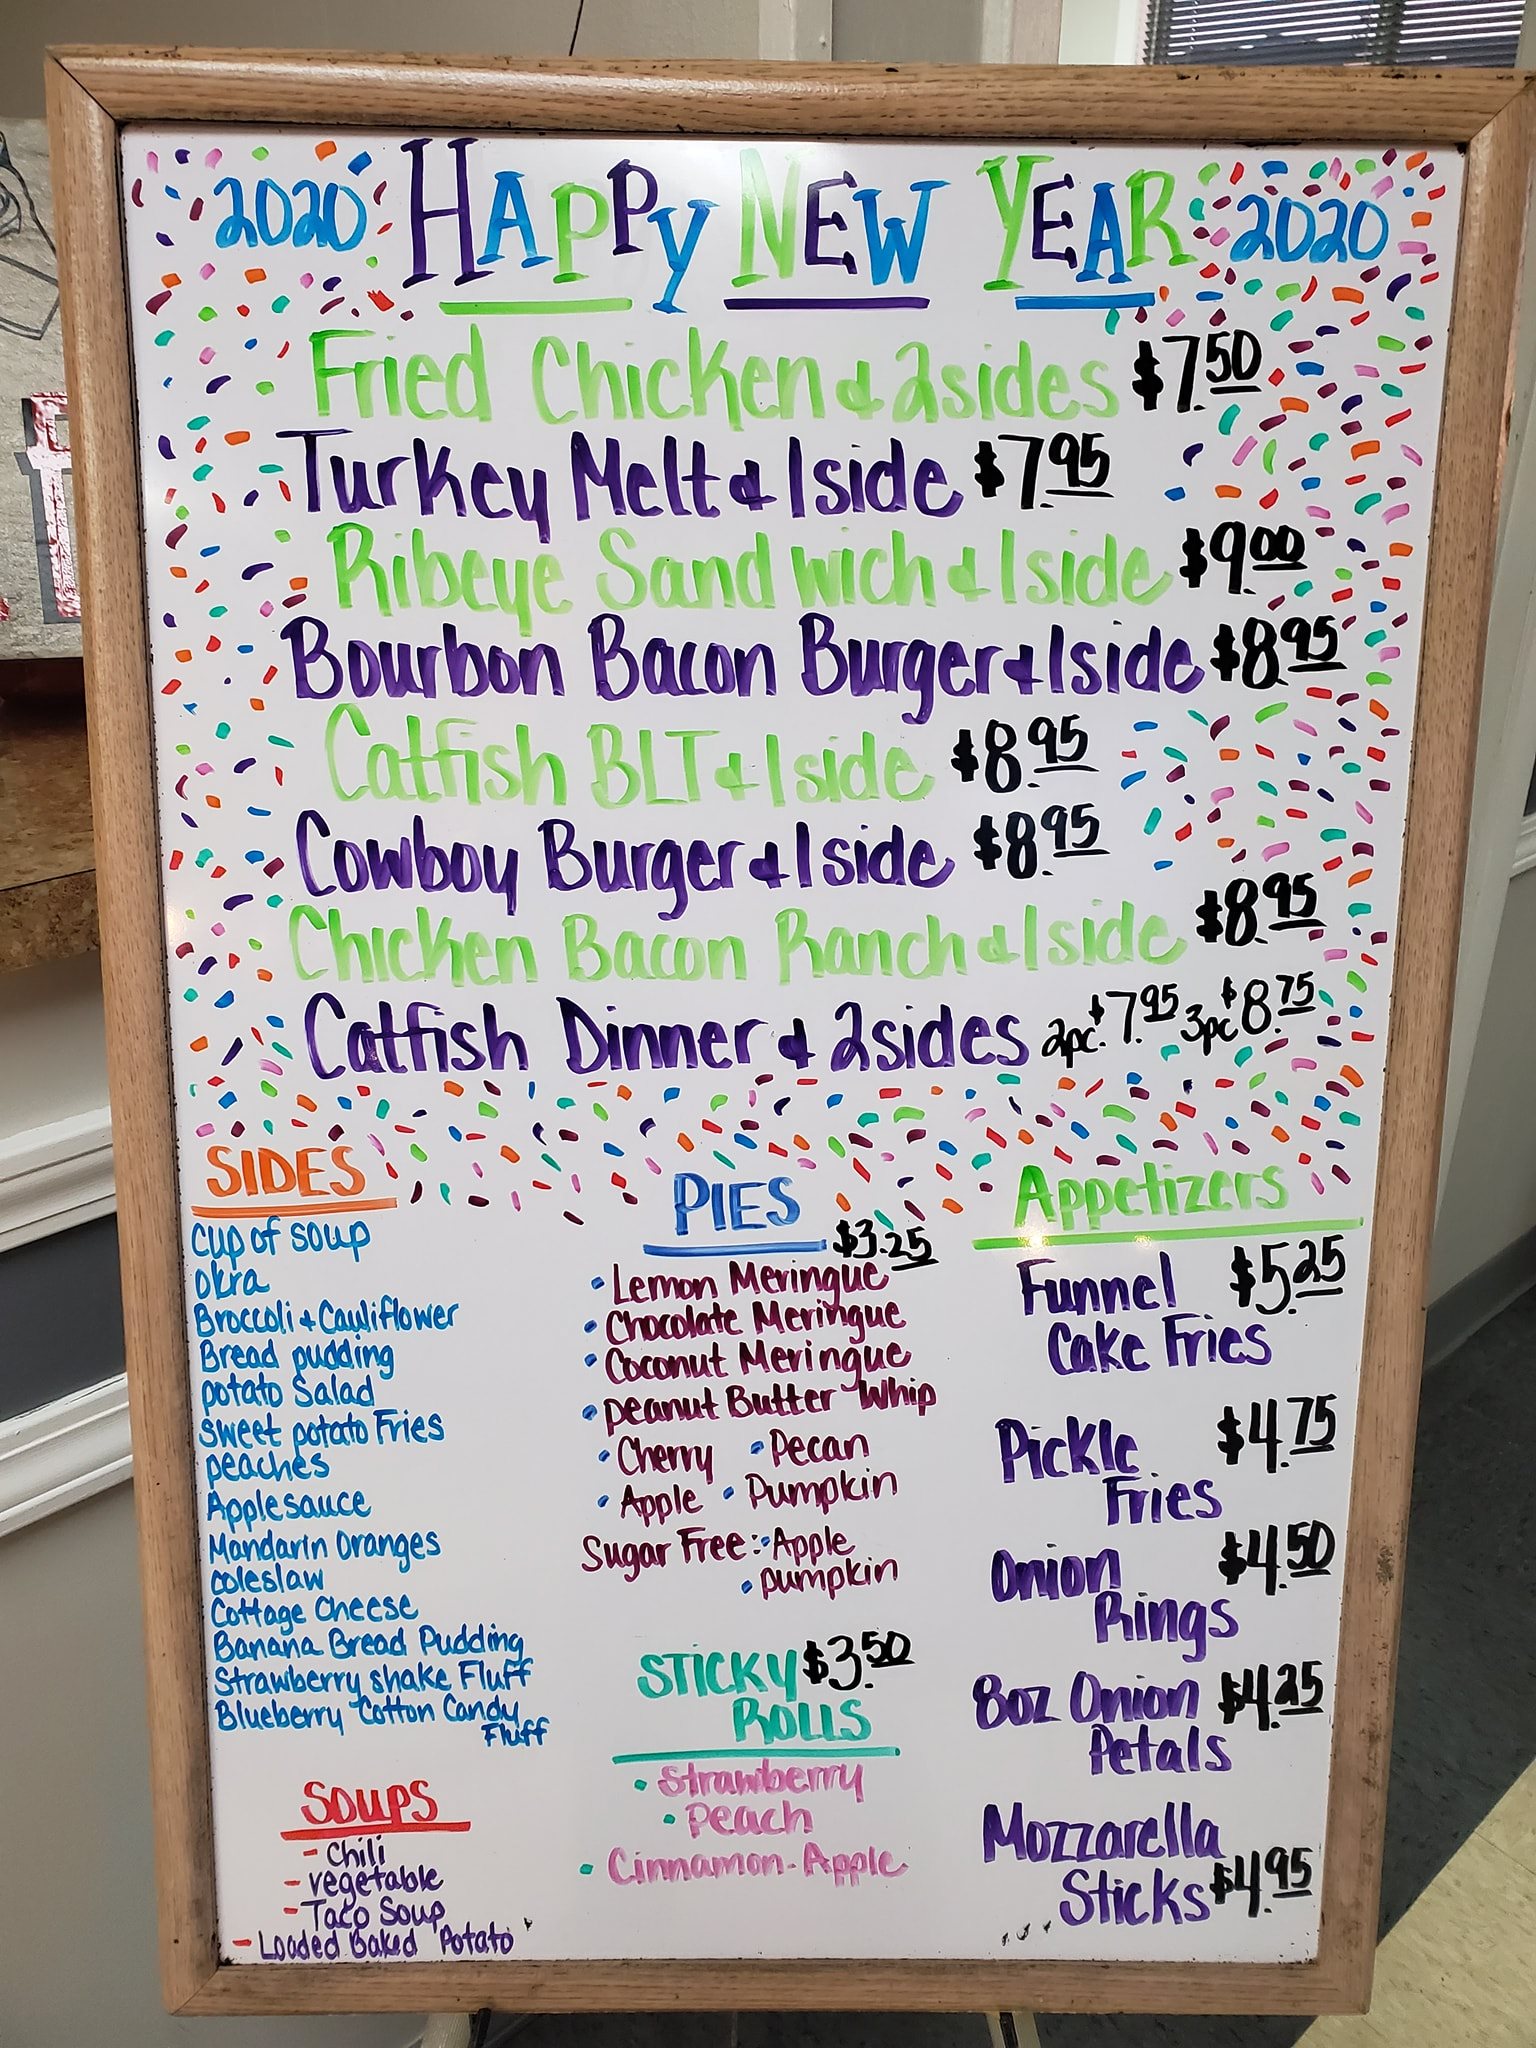 2020 HAPPY NEW YEAR 2020
Fried Chicken & 2sides $7.50
Turkey Melt & 1side $7.95
Ribeye Sandwich & 1side $9.00
Bourbon Bacon Burger & 1side $8.95
Catfish BLT & 1side $8.95
Cowboy Burger & 1side $8.95
Chicken Bacon Ranch & 1side $8.95
Catfish Dinner & 2sides 2pc. $7.95 3pc $8.75
SIDES
cup of soup
Okra
Broccoli & Cauliflower
Bread pudding
potato Salad
sweet potato Fries
peaches
Applesauce
Mandarin Oranges
coleslaw
Cottage Cheese
Banana Bread Pudding
Strawberry shake Fluff
Blueberry Cotton Candy
Fluff
SOUPS
- Chili
- vegetable
- Taco Soup
- Loaded Baked Potato
PIES
$3.25
• Lemon Meringue
• Chocolate Meringue
• Coconut Meringue
• peanut Butter Whip
• Cherry • Pecan
• Apple • Pumpkin
Sugar Free: • Apple
• pumpkin
STICKY $3.50
ROLLS
• Strawberry
• Peach
• Cinnamon-Apple
Appetizers
Funnel $5.25
Cake Fries
Pickle $4.75
Fries
Onion $4.50
Rings
8oz Onion $4.25
Petals
Mozzarella
Sticks $4.95